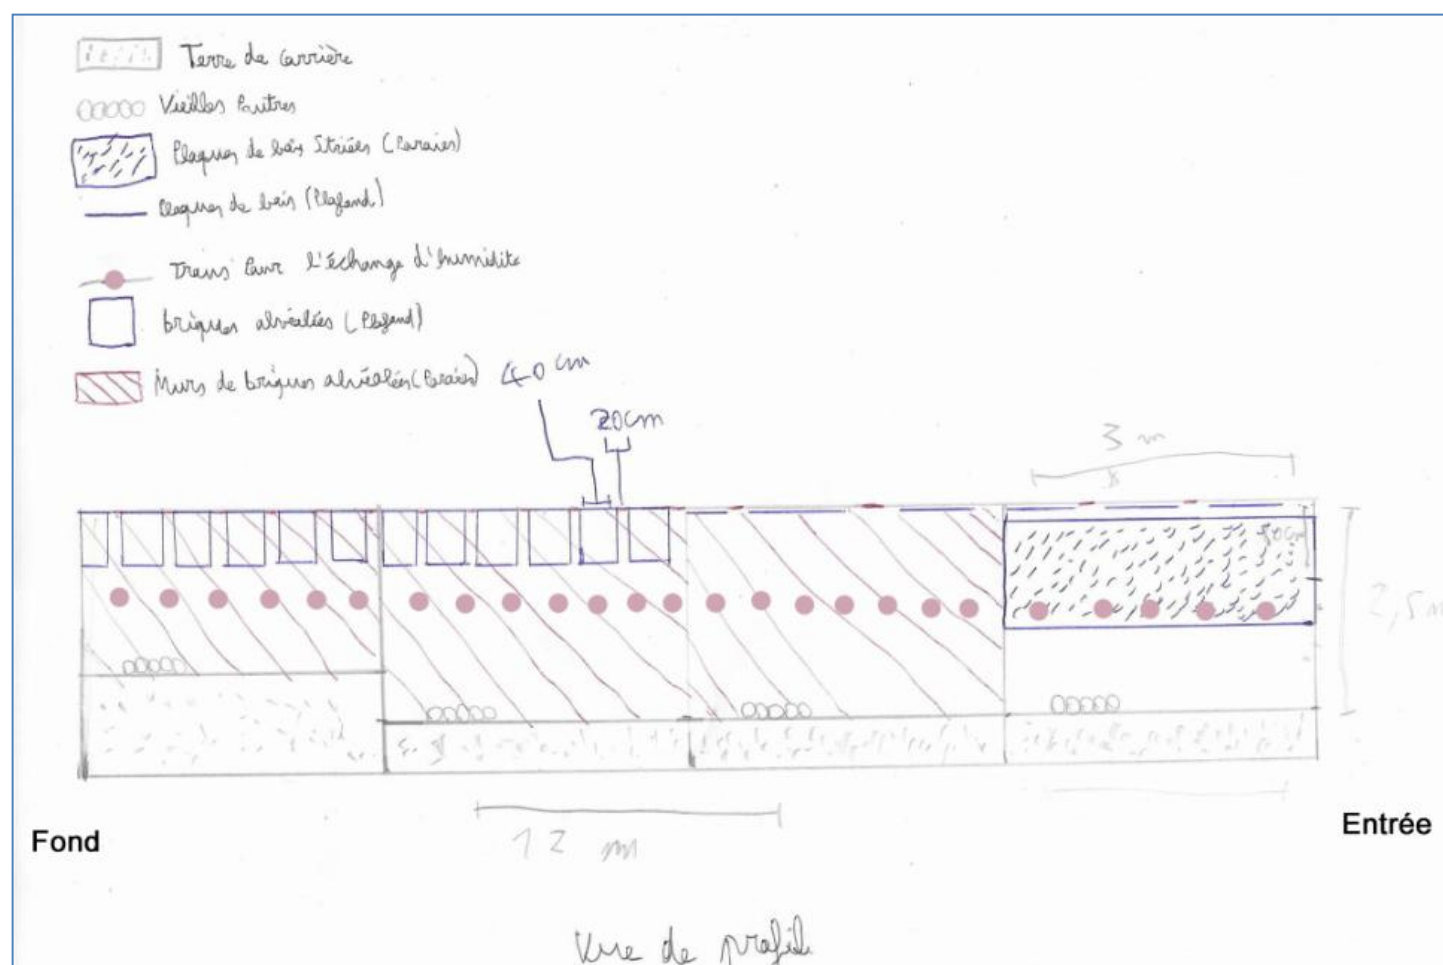 Terre de carrière
Vieilles Poutres
Plaques de bois Striées (Paroies)
Plaques de bois (Plafond)
Trous Pour l'échange d'humidite
briques alvéolées (Plafond)
Murs de briques alvéolées (Paroies)
40 cm
20cm
3 m
80cm
2,5m
12 m
Fond
Entrée
Vue de profil